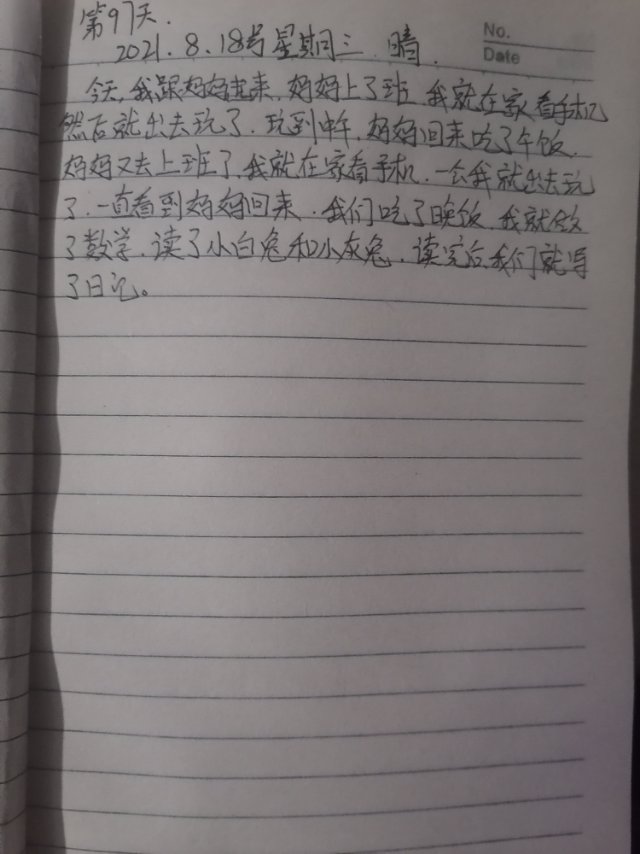 第97天.
No.
2021.8.18号星期三 晴.
Date
今天,我跟妈妈起来,妈妈上了班,我就在家看手机
然后就出去玩了,玩到中午,妈妈回来吃了午饭,
妈妈又去上班了,我就在家看手机,一会我就出去玩
了,一直看到妈妈回来,我们吃了晚饭,我就做
了数学,读了小白兔和小灰兔,读完后,我们就写
了日记。